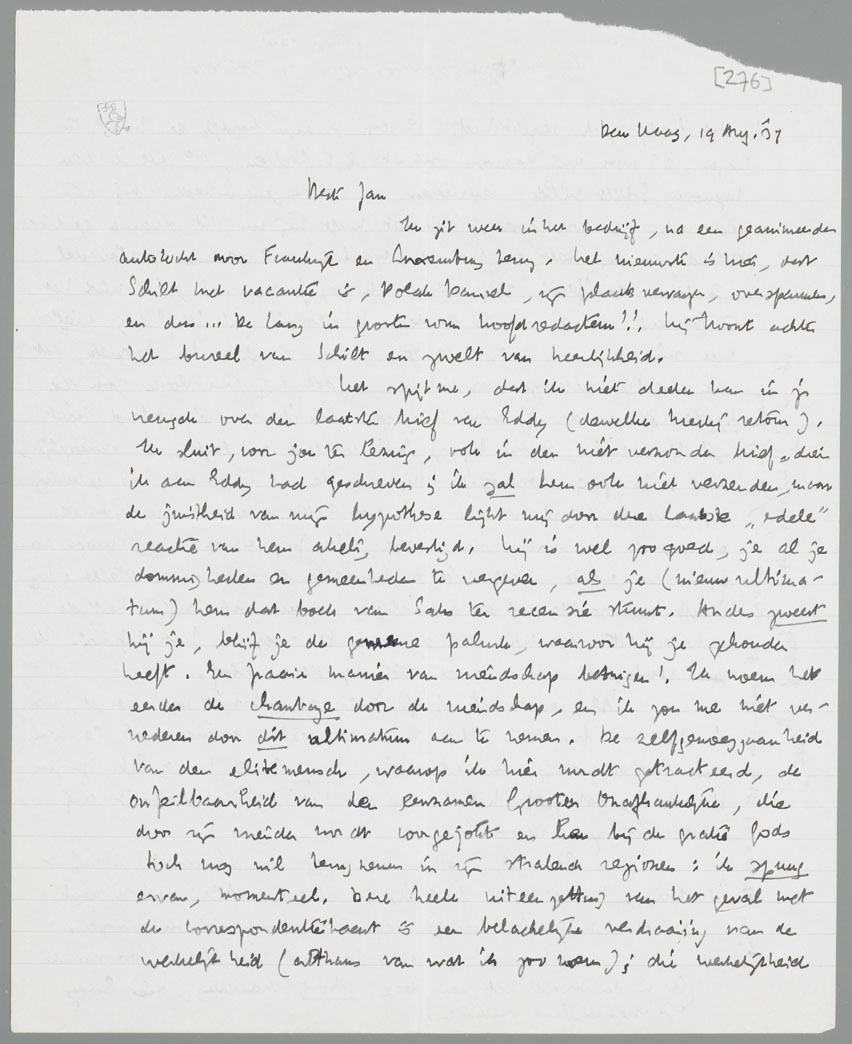 [276]
Den Haag, 19 Aug. '37
Beste Jan
Ik zit weer in het bedrijf, na een geanimeerden
autotocht door Frankrijk en Luxemburg terug. Het nieuwste is hier, dat
Schilt met vacantie is, zijn plaatsvervanger, overspannen,
en dus ... De Lang in grooten vorm hoofdredacteur!! Hij troont achter
het bureel van Schilt en zwelt van heerlijkheid.
Het spijt me, dat ik niet deelen kan in je
vreugde over den laatsten brief van Eddy (dewelke hierbij retour).
Ik sluit, voor jou ter lezing, ook in den niét verzonden brief, dien
ik aan Eddy had geschreven; ik zal hem ook niet verzenden, maar
de juistheid van mijn hypothese lijkt mij door die laatste „edele”
reactie van hem akelig bevestigd. Hij is wel zoo goed, je al je
dommigheden en gemeenheden te vergeven, als je (nieuw ultima-
tum) hem dat boek van Saks ter recensie stuurt. Anders zweert
hij je, blijf je de gemeene, waarvoor hij je gehouden
heeft. Een fraaie manier van vriendschap betuigen! Ik noem het
eerder de chantage door de vriendschap, en ik zou me niet ver-
nederen door dit ultimatum aan te nemen. De zelfgenoegzaamheid
van den elitemensch, waarop ik hier wordt getracteerd, de
onfeilbaarheid van den eenzamen Grooten Onafhankelijke, die
door zijn vrienden wordt voorgejokt en hen bij de gratie Gods
toch nog wil terugnemen in zijn stralende regionen: ik spuug
ervan, momenteel. Deze heele uiteenzetting van het geval met
de correspondentiekaart is een belachelijke verdraaiing van de
werkelijkheid (althans van wat ik zoo noem); die werkelijkheid